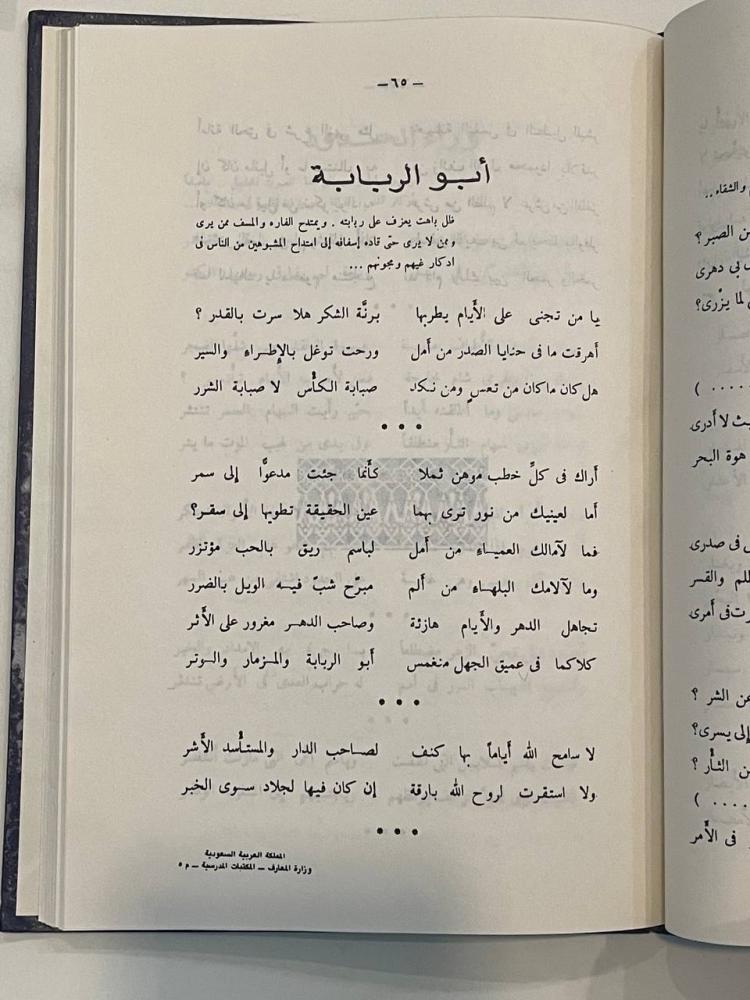 — ٦٥ —
أبو الربابة
ظل باهت يعزف على ربابته . ويمتدح الفاره والمسف ممن يرى
وممن لا يرى حتى قاده إسفافه إلى امتداح المشبوهين من الناس فى
ادكار غيهم ومجونهم ...
يا من تجنى على الأيام يطربها برنَّة الشكر هلا سرت بالقدر ؟
أهرقت ما فى حنايا الصدر من أمل ورحت توغل بالإطراء والسير
هل كان ماكان من تعس ومن نكد صبابة الكأس لا صبابة الشرر
• • •
أراك فى كلِّ خطب موهن ثملا كأنما جئت مدعوًّا إلى سمر
أما لعينيك من نور ترى بهما عين الحقيقة تطويها إلى سقر؟
فما لآمالك العمياء من أمل لباسم ريق بالحب مؤتزر
وما لآلامك البلهاء من ألم مبرّح شبّ فيه الويل بالضرر
تجاهل الدهر والأيام هازئة وصاحب الدهر مغرور على الأثر
كلاكما فى عميق الجهل منغمس أبو الربابة والمزمار والوتر
• • •
لا سامح الله أياماً بها كنف لصاحب الدار والمستأسد الأشر
ولا استقرت لروح الله بارقة إن كان فيها لجلاد سوى الخبر
• • •
المملكة العربية السعودية
وزارة المعارف — المكتبات المدرسية — م ٥
والشقاء ..
ن الصبر ؟
بى دهرى
لما يزْرى؟
.... )
ث لا أدرى
هوة البحر
فى صدرى
لم والقسر
رت فى أمرى
عن الشر ؟
إلى يسرى؟
ن الثأر ؟
.... )
فى الأمر